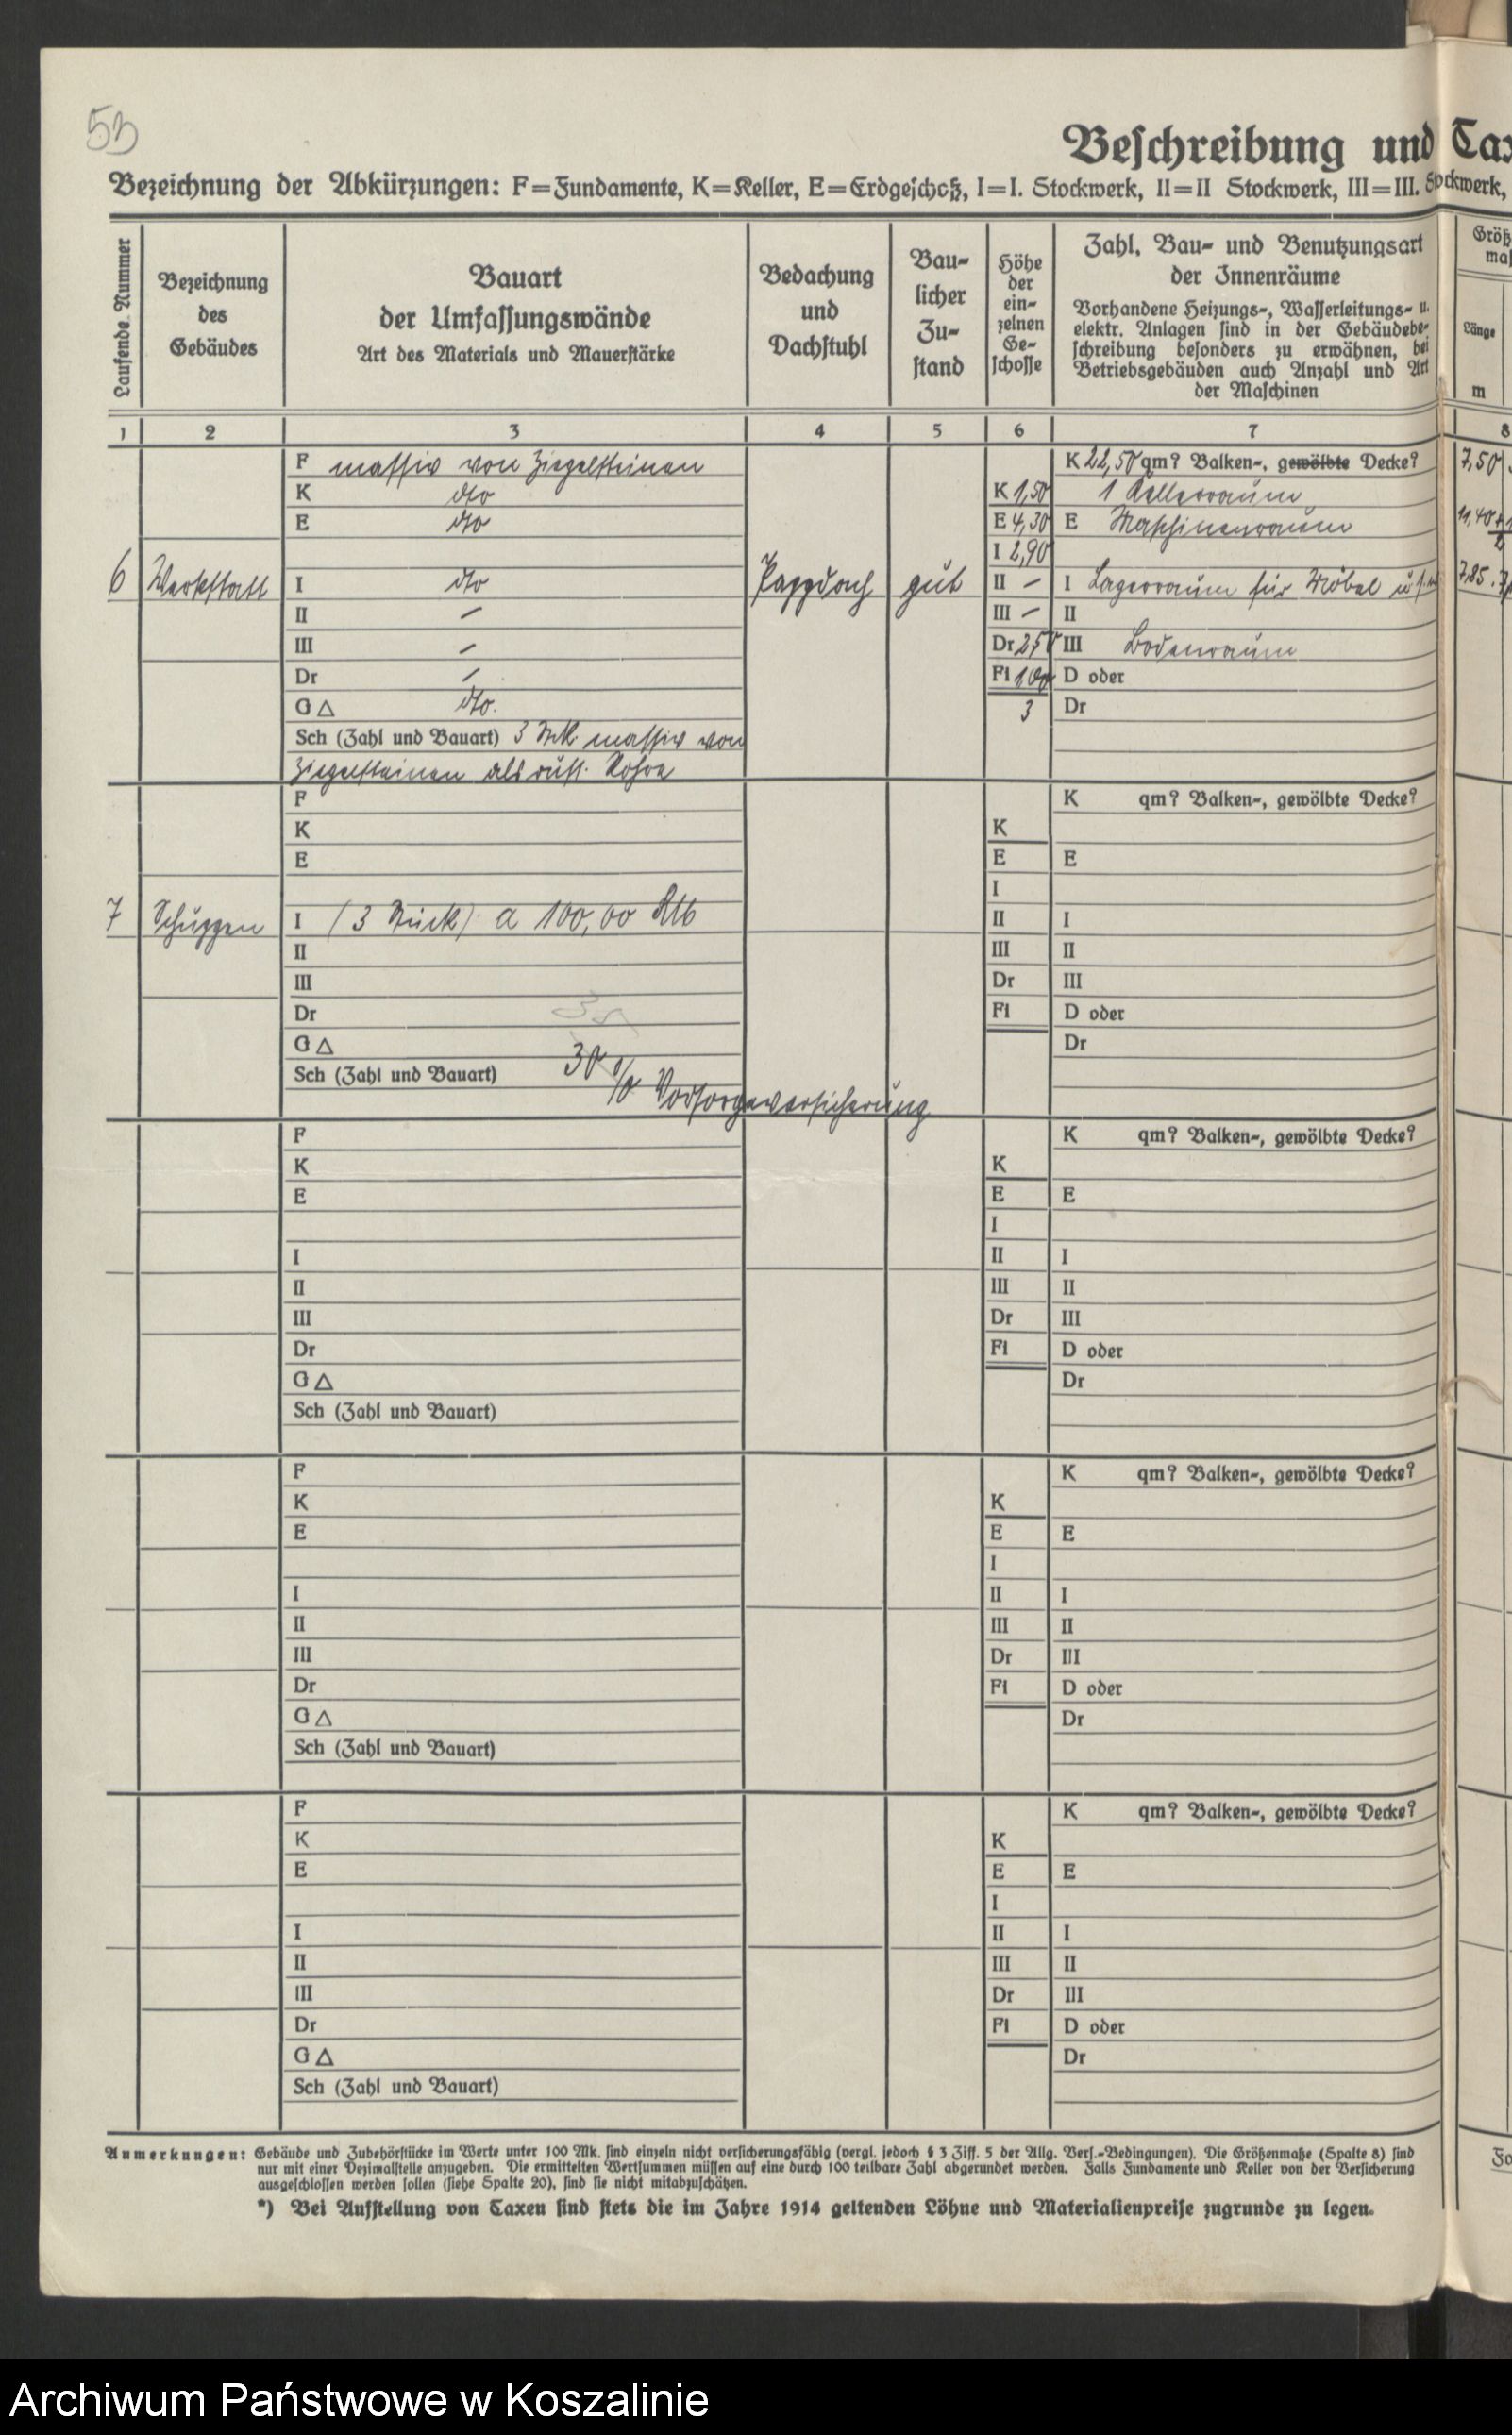 53
Beschreibung und Tax
Bezeichnung der Abkürzungen: F=Fundamente, K=Keller, E=Erdgeschoß, I=I. Stockwerk, II=II Stockwerk, III=III. Stockwerk,
Laufende Nummer
Bezeichnung
des
Gebäudes
Bauart
der Umfassungswände
Art des Materials und Mauerstärke
Bedachung
und
Dachstuhl
Bau-
licher
Zu-
stand
Höhe
der
ein-
zelnen
Ge-
schosse
Zahl, Bau- und Benutzungsart
der Innenräume
Vorhandene Heizungs-, Wasserleitungs- u.
elektr. Anlagen sind in der Gebäudebe-
schreibung besonders zu erwähnen, bei
Betriebsgebäuden auch Anzahl und Art
der Maschinen
Größ
maß
Länge
m
1 2 3 4 5 6 7 8
F massiv von Ziegelsteinen K 22,50 qm? Balken-, gewölbte Decke? 7,50
K dto K 1,50 1 Kellerraum
E dto E 4,30 E Maschinenraum 11,40
I 2,90
6 Werkstatt I dto Pappdach gut II – I Lagerraum für Möbel u.s.w. 7,85
II – III – II
III – Dr 2,50 III Bodenraum
Dr – Fl 1,00 D oder
G △ dto. 3 Dr
Sch (Zahl und Bauart) 3 Stk. massiv von
Ziegelsteinen als russ. Rohre
F K qm? Balken-, gewölbte Decke?
K K
E E E
I
7 Schuppen I (3 Stück) a 100,00 RM II I
II III II
III Dr III
Dr Fl D oder
G △ Dr
Sch (Zahl und Bauart) 30 % Vorsorgeversicherung
F K qm? Balken-, gewölbte Decke?
K K
E E E
I
I II I
II III II
III Dr III
Dr Fl D oder
G △ Dr
Sch (Zahl und Bauart)
F K qm? Balken-, gewölbte Decke?
K K
E E E
I
I II I
II III II
III Dr III
Dr Fl D oder
G △ Dr
Sch (Zahl und Bauart)
F K qm? Balken-, gewölbte Decke?
K K
E E E
I
I II I
II III II
III Dr III
Dr Fl D oder
G △ Dr
Sch (Zahl und Bauart)
Anmerkungen: Gebäude und Zubehörstücke im Werte unter 100 Mk. sind einzeln nicht versicherungsfähig (vergl. jedoch § 3 Ziff. 5 der Allg. Vers.-Bedingungen). Die Größenmaße (Spalte 8) sind
nur mit einer Dezimalstelle anzugeben. Die ermittelten Wertsummen müssen auf eine durch 100 teilbare Zahl abgerundet werden. Falls Fundamente und Keller von der Versicherung
ausgeschlossen werden sollen (siehe Spalte 20), sind sie nicht mitabzuschätzen.
*) Bei Aufstellung von Taxen sind stets die im Jahre 1914 geltenden Löhne und Materialienpreise zugrunde zu legen.
Archiwum Państwowe w Koszalinie